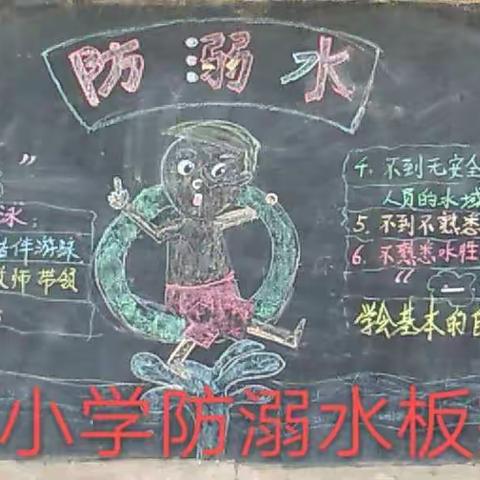 防溺水
”
泳；
结伴游泳
教师带领
4. 不到无安全
人员的水域
5. 不到不熟悉
6. 不熟悉水性
“一
学会基本的自
小学防溺水板